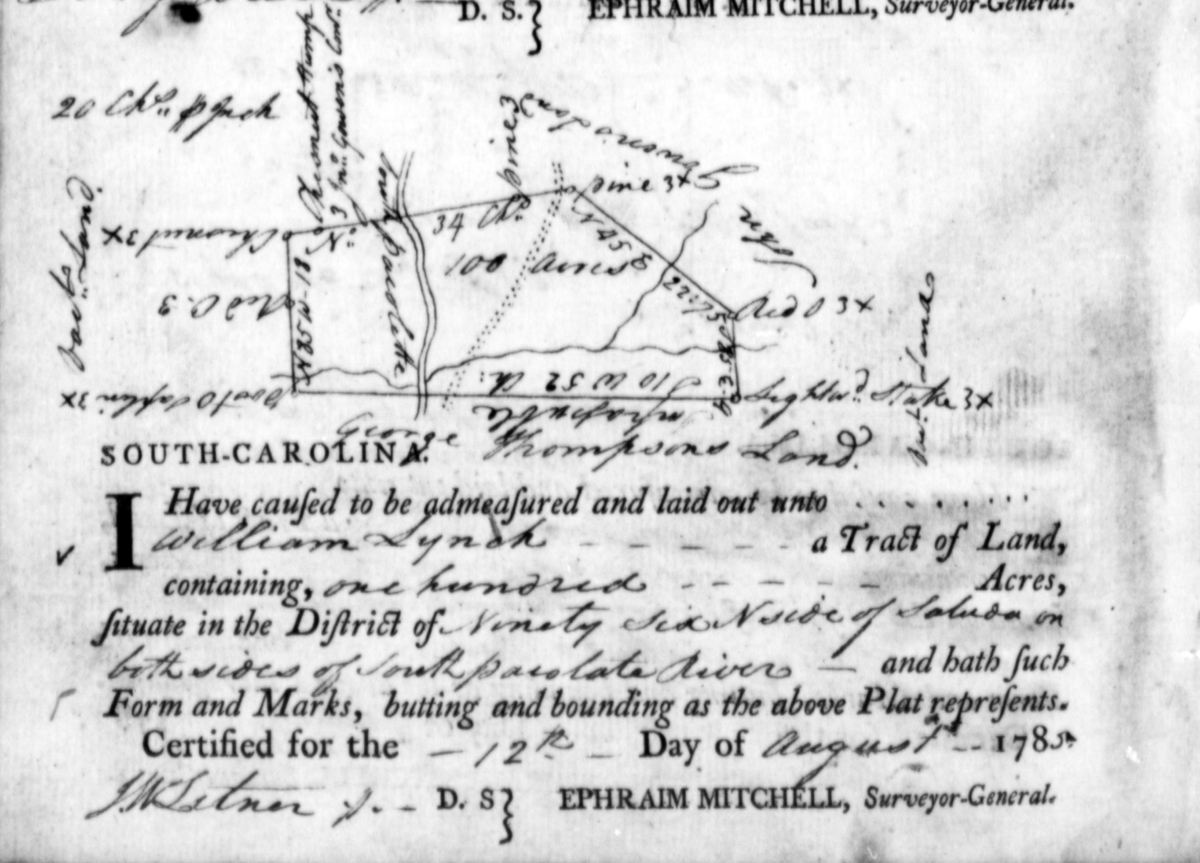 D. S. } EPHRAIM MITCHELL, Surveyor-General.
20 Chs. P Inch
Chesnut Stump
3 Jno. Gowen's Cor.
Pine 3
pine 3x
Chesnut 3x
Vact. Land
South Pacolate
34 Chs.
N 45 E
100 Acres
22:75
Red O 3
N 25 W 18
Red O 3x
Jno.
Land
S 10 W 52 Ch:
Post O Saplin 3x
Lightwd. Stake 3x
George Thompsons Land.
SOUTH-CAROLINA.
I Have cauſed to be admeaſured and laid out unto
William Lynch a Tract of Land,
containing, one hundred Acres,
ſituate in the Diſtrict of Ninety Six N side of Saluda on
both sides of South pacolate River and hath ſuch
Form and Marks, butting and bounding as the above Plat repreſents.
Certified for the 12th Day of August 1785.
D. S } EPHRAIM MITCHELL, Surveyor-General.